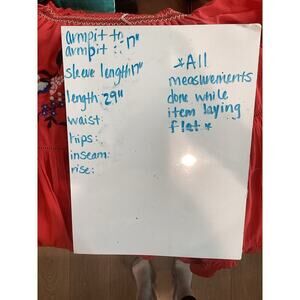 armpit to
armpit : 17"
sleeve length 17"
length: 29"
waist:
hips:
inseam:
rise:
*All
measurements
done while
item laying
flat *